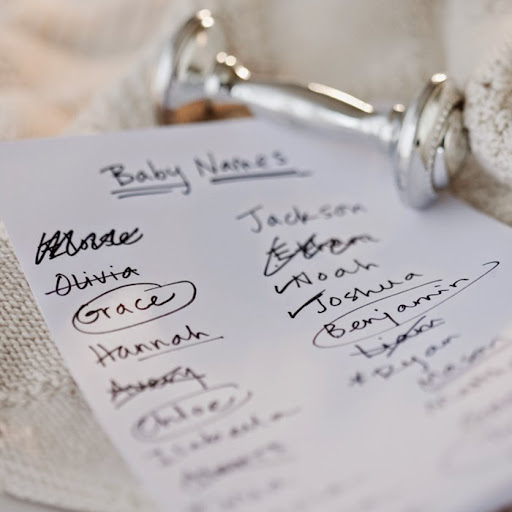 Baby Names
Olivia
Grace
Hannah
Avery
Chloe
Isabella
Jackson
Ethan
Noah
Joshua
Benjamin
Liam
Ryan
Mason